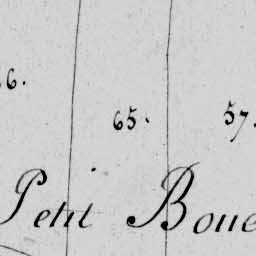 6. 65. 57.
Petit Boue